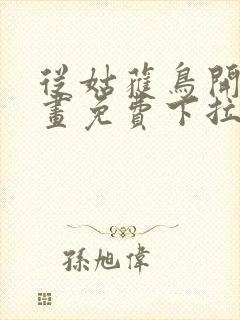 從姑蘿鳥開
畫免費下拉
孫旭偉